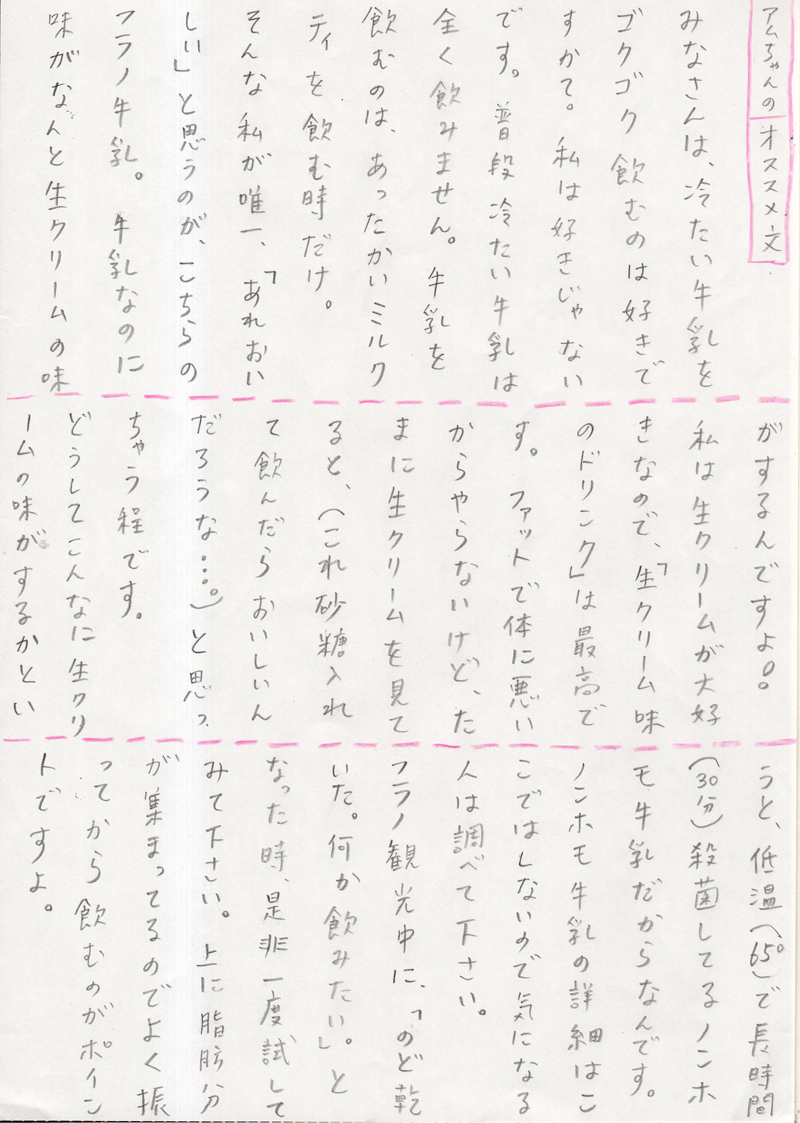 アムちゃんのオススメ文
みなさんは、冷たい牛乳を
ゴクゴク飲むのは好きで
すかて。私は好きじゃない
です。普段冷たい牛乳は
全く飲みません。牛乳を
飲むのは、あったかいミルク
ティを飲む時だけ。
そんな私が唯一、「あれおい
しい」と思うのが、こちらの
フラノ牛乳。牛乳なのに
味がなんと生クリームの味
がするんですよ!。
私は生クリームが大好
きなので、「生クリーム味
のドリンク」は最高で
す。ファットで体に悪い
からやらないけど、た
まに生クリームを見て
ると、(これ砂糖入れ
て飲んだらおいしいん
だろうな…。)と思っ
ちゃう程です。
どうしてこんなに生クリ
ームの味がするかとい
うと、低温(65°)で長時間
(30分)殺菌してるノンホ
モ牛乳だからなんです。
ノンホモ牛乳の詳細はこ
こではしないので気になる
人は調べて下さい。
フラノ観光中に、「のど乾
いた。何か飲みたい」。と
なった時、是非一度試して
みて下さい。上に脂肪分
が集まってるのでよく振
ってから飲むのがポイン
トですよ。